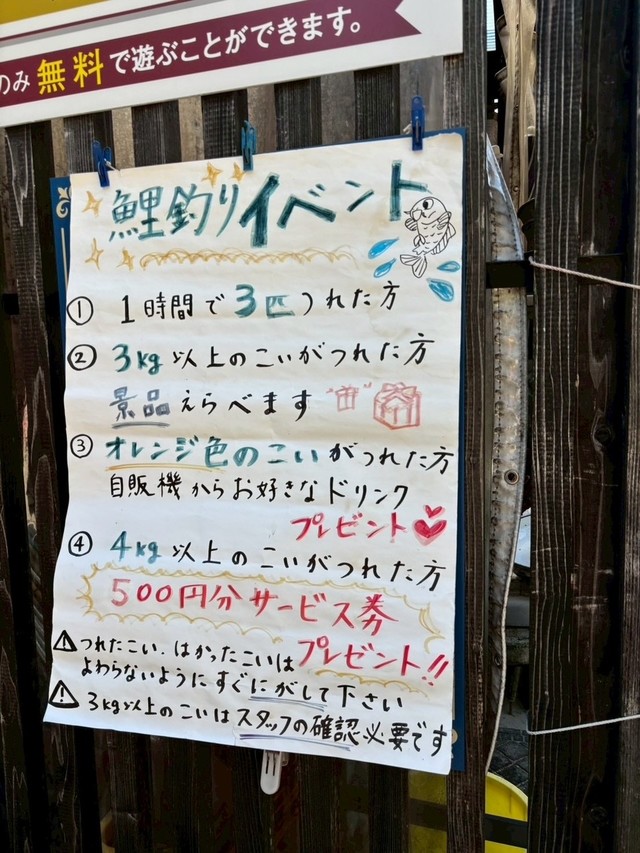 のみ 無料で遊ぶことができます。
鯉釣りイベント
① 1時間で3匹つれた方
② 3kg以上のこいがつれた方
景品えらべます
③ オレンジ色のこいがつれた方
自販機からお好きなドリンク
プレゼント
④ 4kg以上のこいがつれた方
500円分サービス券
プレゼント!!
⚠つれたこい、はかったこいは
よわらないようにすぐにがして下さい
⚠3kg以上のこいはスタッフの確認必要です